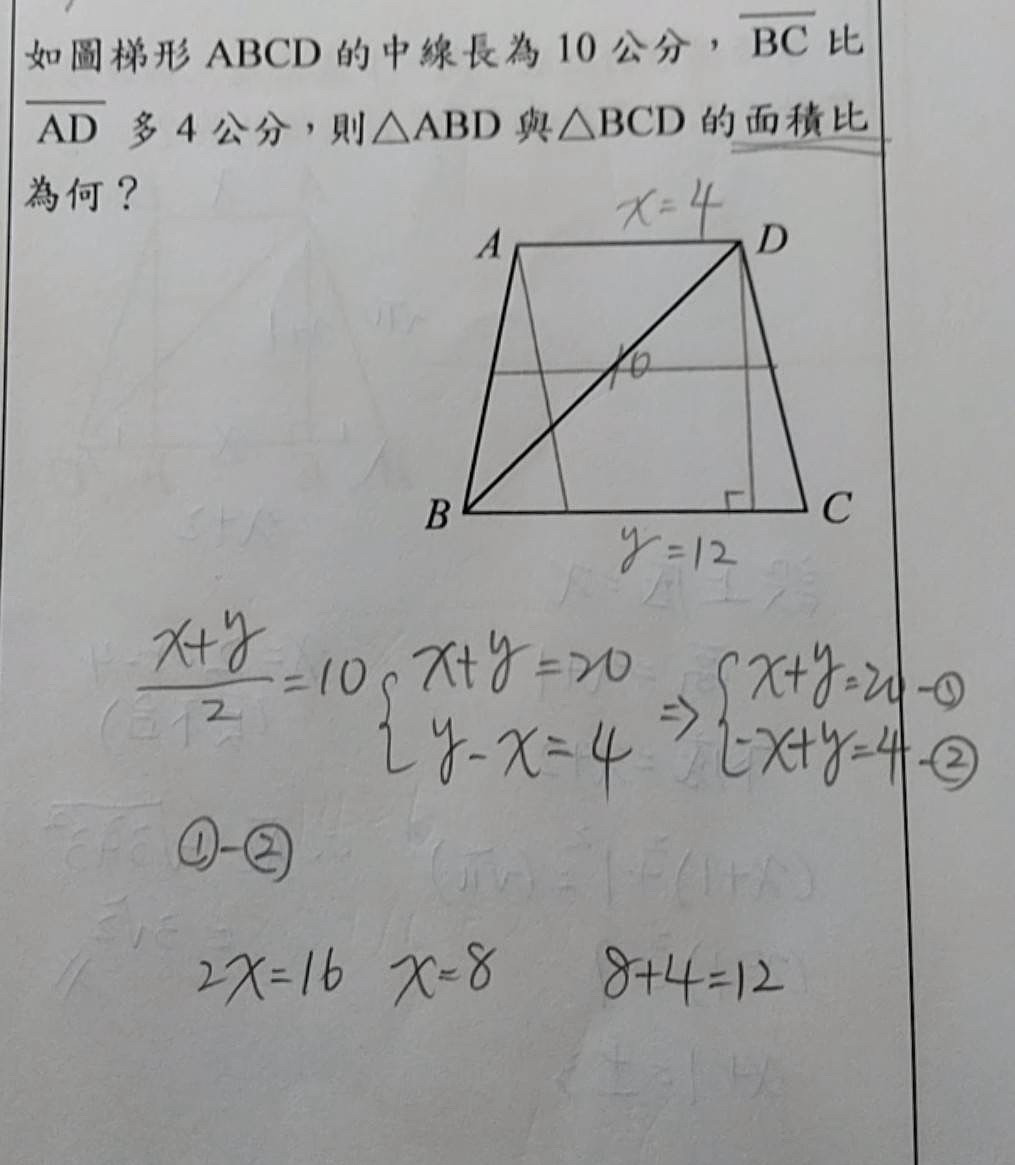 如圖梯形 ABCD 的中線長為 10 公分，BC 比
AD 多 4 公分，則△ABD 與△BCD 的面積比
為何？
x=4
A
D
10
B
C
y=12
x+y/2=10 { x+y=20 ⇒ { x+y=20 -①
y-x=4 -x+y=4 -②
①-②
2x=16 x=8 8+4=12